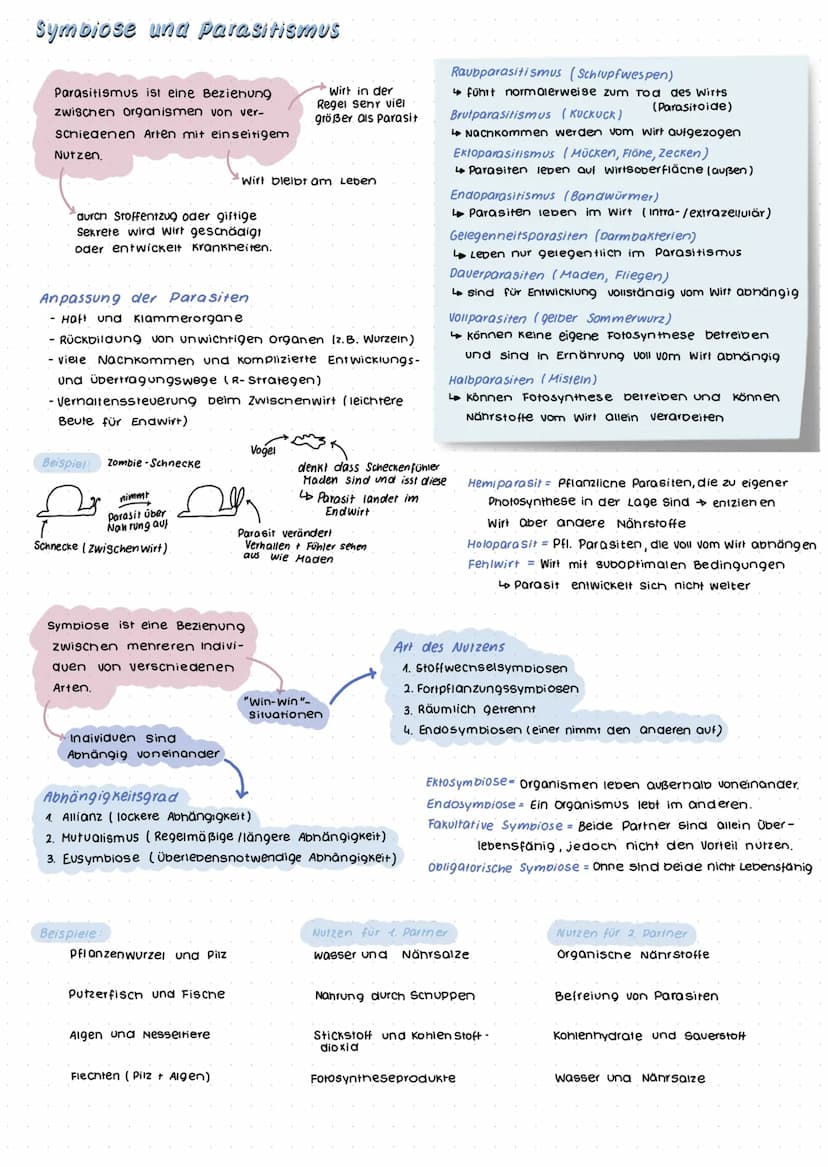 Symbiose und Parasitismus
Parasitismus ist eine Beziehung
zwischen Organismen von ver-
schiedenen Arten mit einseitigem
Nutzen.
Wirt in der
Regel sehr viel
größer als Parasit
Wirt bleibt am Leben
durch Stoffentzug oder giftige
Sekrete wird Wirt geschädigt
oder entwickelt Krankheiten.
Anpassung der Parasiten
- Haft und Klammerorgane
- Rückbildung von unwichtigen Organen (z.B. Wurzeln)
- viele Nachkommen und komplizierte Entwicklungs-
und Übertragungswege (R-Strategen)
- Verhaltenssteuerung beim Zwischenwirt (leichtere
Beute für Endwirt)
Raubparasitismus (Schlupfwespen)
↳ führt normalerweise zum Tod des Wirts
(Parasitoide)
Brutparasitismus (Kuckuck)
↳ Nachkommen werden vom Wirt aufgezogen
Ektoparasitismus (Mücken, Flöhe, Zecken)
↳ Parasiten leben auf Wirtsoberfläche (außen)
Endoparasitismus (Bandwürmer)
↳ Parasiten leben im Wirt (intra-/extrazellulär)
Gelegenheitsparasiten (Darmbakterien)
↳ Leben nur gelegentlich im Parasitismus
Dauerparasiten (Maden, Fliegen)
↳ sind für Entwicklung vollständig vom Wirt abhängig
Vollparasiten (gelber Sommerwurz)
↳ können keine eigene Fotosynthese betreiben
und sind in Ernährung voll vom Wirt abhängig
Halbparasiten (Misteln)
↳ können Fotosynthese betreiben und können
Nährstoffe vom Wirt allein verarbeiten
Beispiel: Zombie-Schnecke
nimmt
Parasit über
Nahrung auf
Schnecke (Zwischenwirt)
Vogel
denkt dass Scheckenfühler
Maden sind und isst diese
↳ Parasit landet im
Endwirt
Parasit verändert
Verhalten + Fühler sehen
aus wie Maden
Hemiparasit = Pflanzliche Parasiten, die zu eigener
Photosynthese in der Lage sind → entziehen
Wirt aber andere Nährstoffe
Holoparasit = Pfl. Parasiten, die voll vom Wirt abhängen
Fehlwirt = Wirt mit suboptimalen Bedingungen
↳ Parasit entwickelt sich nicht weiter
Symbiose ist eine Beziehung
zwischen mehreren Indivi-
duen von verschiedenen
Arten.
"Win-Win"-
Situationen
Individuen sind
Abhängig voneinander
Art des Nutzens
1. Stoffwechselsymbiosen
2. Fortpflanzungssymbiosen
3. Räumlich getrennt
4. Endosymbiosen (einer nimmt den anderen auf)
Abhängigkeitsgrad
1. Allianz (lockere Abhängigkeit)
2. Mutualismus (Regelmäßige/längere Abhängigkeit)
3. Eusymbiose (Überlebensnotwendige Abhängigkeit)
Ektosymbiose = Organismen leben außerhalb voneinander.
Endosymbiose = Ein Organismus lebt im anderen.
Fakultative Symbiose = Beide Partner sind allein über-
lebensfähig, jedoch nicht den Vorteil nutzen.
Obligatorische Symbiose = Ohne sind beide nicht Lebensfähig
Beispiele: Nutzen für 1. Partner Nutzen für 2. Partner
Pflanzenwurzel und Pilz Wasser und Nährsalze Organische Nährstoffe
Putzerfisch und Fische Nahrung durch Schuppen Befreiung von Parasiten
Algen und Nesseltiere Stickstoff und Kohlenstoff- Kohlenhydrate und Sauerstoff
dioxid
Flechten (Pilz + Algen) Fotosyntheseprodukte Wasser und Nährsalze